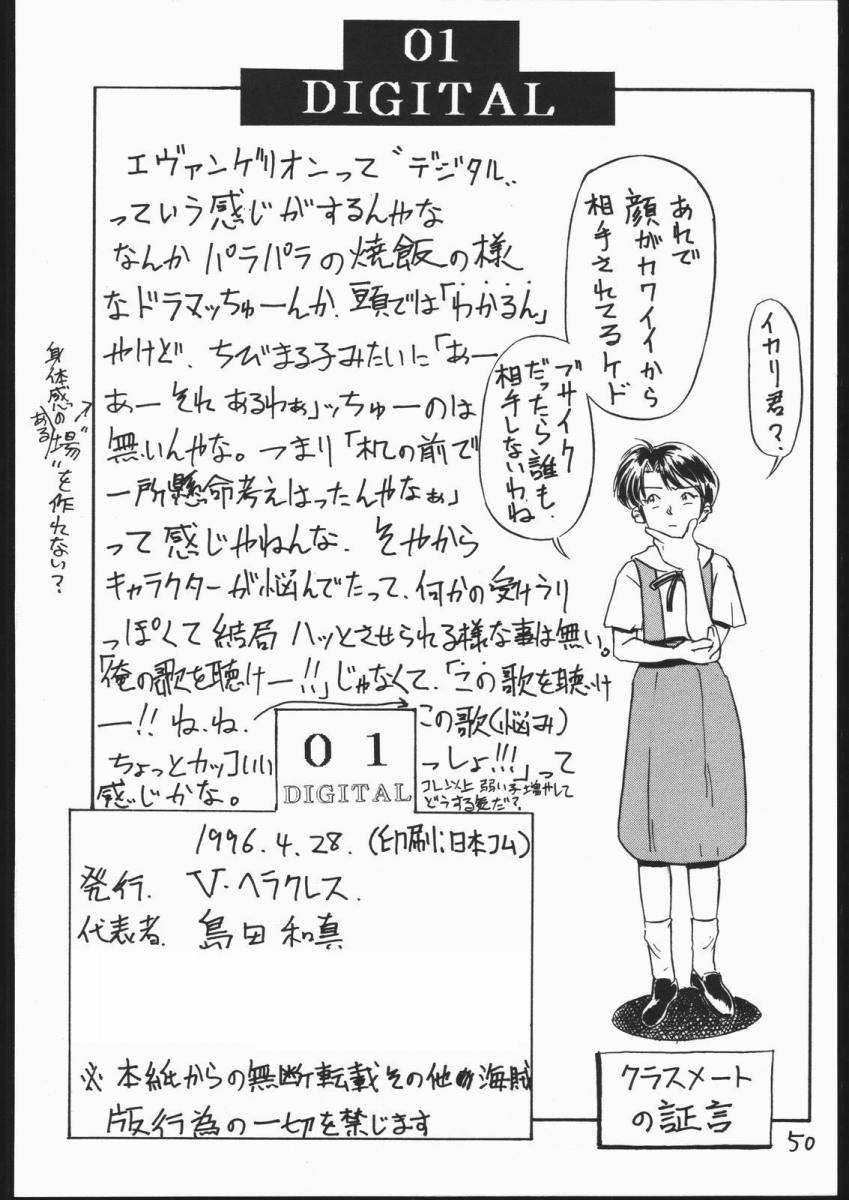 01
DIGITAL
エヴァンゲリオンって〝デジタル〟
っていう感じがするんやな
なんか パラパラの焼飯の様
なドラマッちゅーんか、頭では「わかるん」
やけど、ちびまる子みたいに「あー
あー それ あるわぁ」ッちゅーのは
無いんやな。つまり「机の前で
一所懸命考えはったんやなぁ」
って 感じやねんな、そやから
キャラクターが悩んでたって、何かの受けうり
っぽくて 結局 ハッとさせられる様な事は無い。
「俺の歌を聴けー!!」じゃなくて、「この歌を聴け
ー!! ね、ね、
この歌(悩み)
ちょっとカッコいい
っしょ!!!」って
感じかな。
コレ以上 弱い子増やして
どうする気だ?
身体感の
ある
〝場〟を作れない?
あれで
顔がカワイイから
相手されてるケド
ブサイク
だったら誰も
相手しないわね
イカリ君?
01
DIGITAL
1996.4.28.(印刷;日本コム)
発行. V・ヘラクレス.
代表者. 島田和真
※本紙からの無断転載その他の海賊
版行為の一切を禁じます
クラスメート
の証言
50